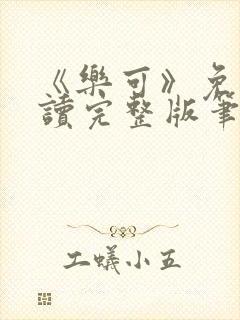 《樂可》免
讀完整版筆
工蟻小五